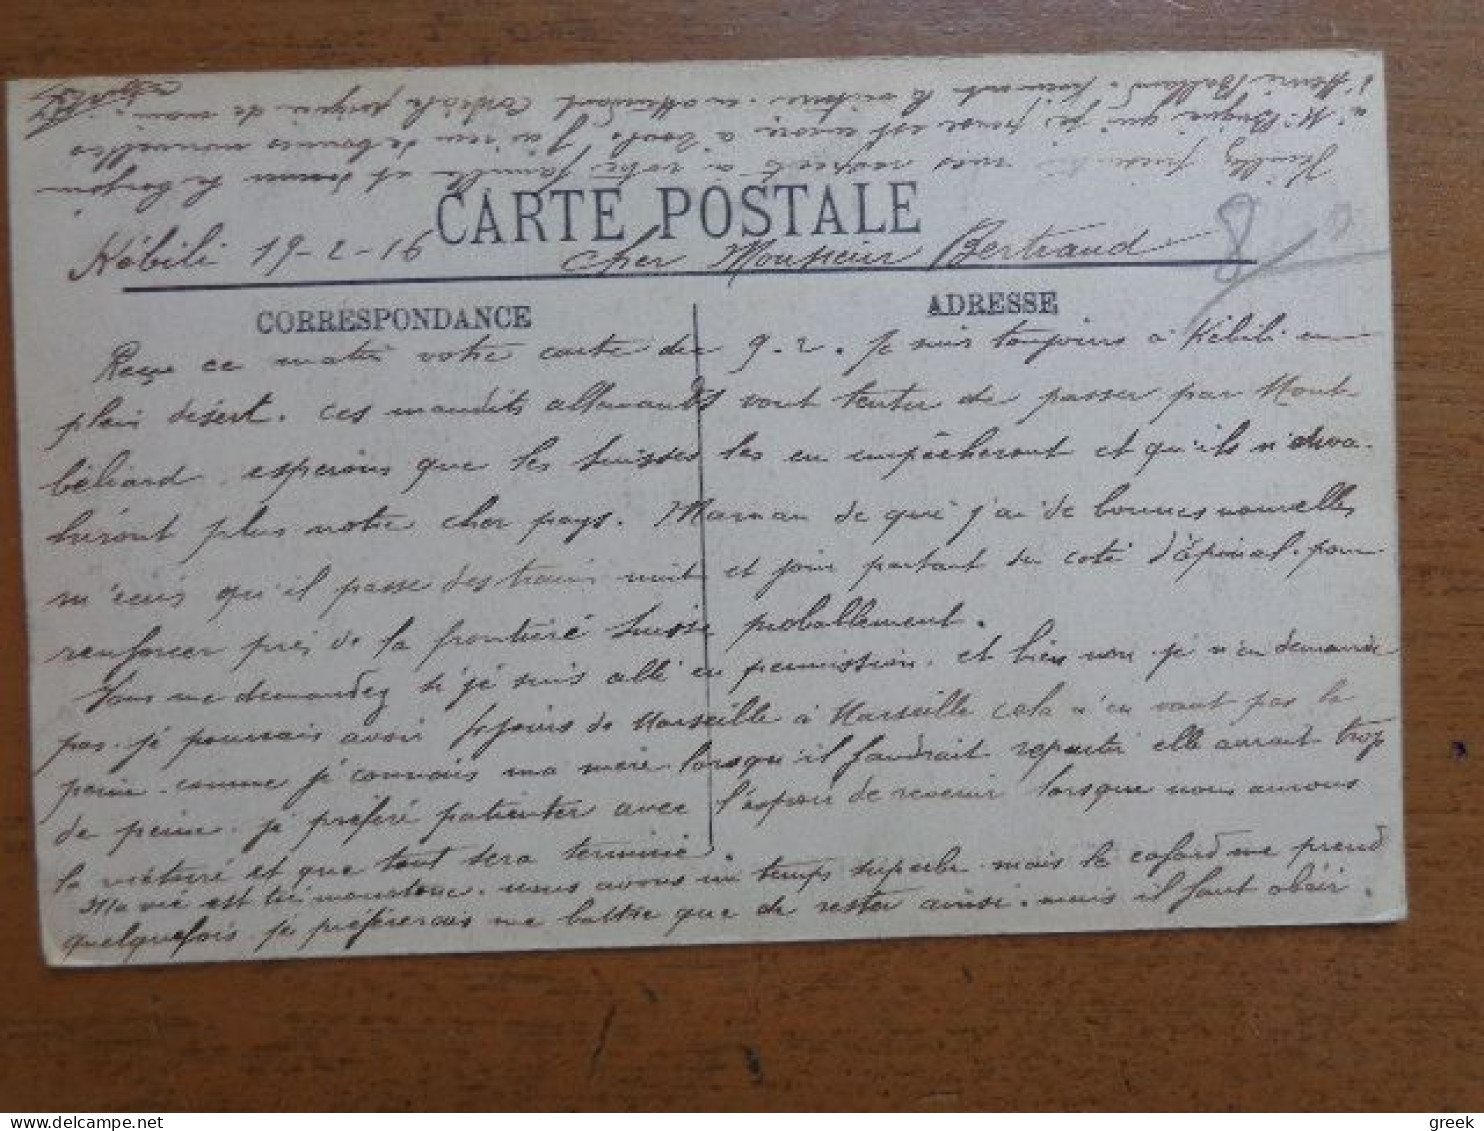 CARTE POSTALE
Kébili 19-2-16 Cher Monsieur Bertrand
CORRESPONDANCE
ADRESSE
Reçu ce matin votre carte du 9-2. Je suis toujours à Kébili en
plein désert. ces maudits allemands vont tenter de passer par Mont
béliard. esperons que les Suisses les en empêcheront et qu'ils n'enva-
hiront plus notre cher pays. Maman de qui j'ai de bonnes nouvelles
m'écris qu'il passe des trains nuit et jour partant du coté d'Épinal. pour
renforcer près de la frontière Suisse probablement.
Vous me demandez si je suis allé en permission. et bien non je n'en demande
pas. je pourrais avoir 8 jours de Marseille à Marseille cela n'en vaut pas la
peine. comme je connais ma mère lorsqu'il faudrait repartir elle aurait trop
de peine. je préfère patienter avec l'espoir de revenir lorsque nous aurons
la victoire et que tout sera terminé.
Ma vie est très monotone. nous avons un temps superbe mais le cafard me prend
quelquefois. je préfèrerais me battre que de rester ainsi. mais il faut obéir.
Veuillez présenter mes respects à votre famille et donner le bonjour
à Mr qui je pense est encore à J'ai reçu de bonnes nouvelles
d'Henri Vivement la victoire. en attendant Cordiale poignée de main.
8
greek